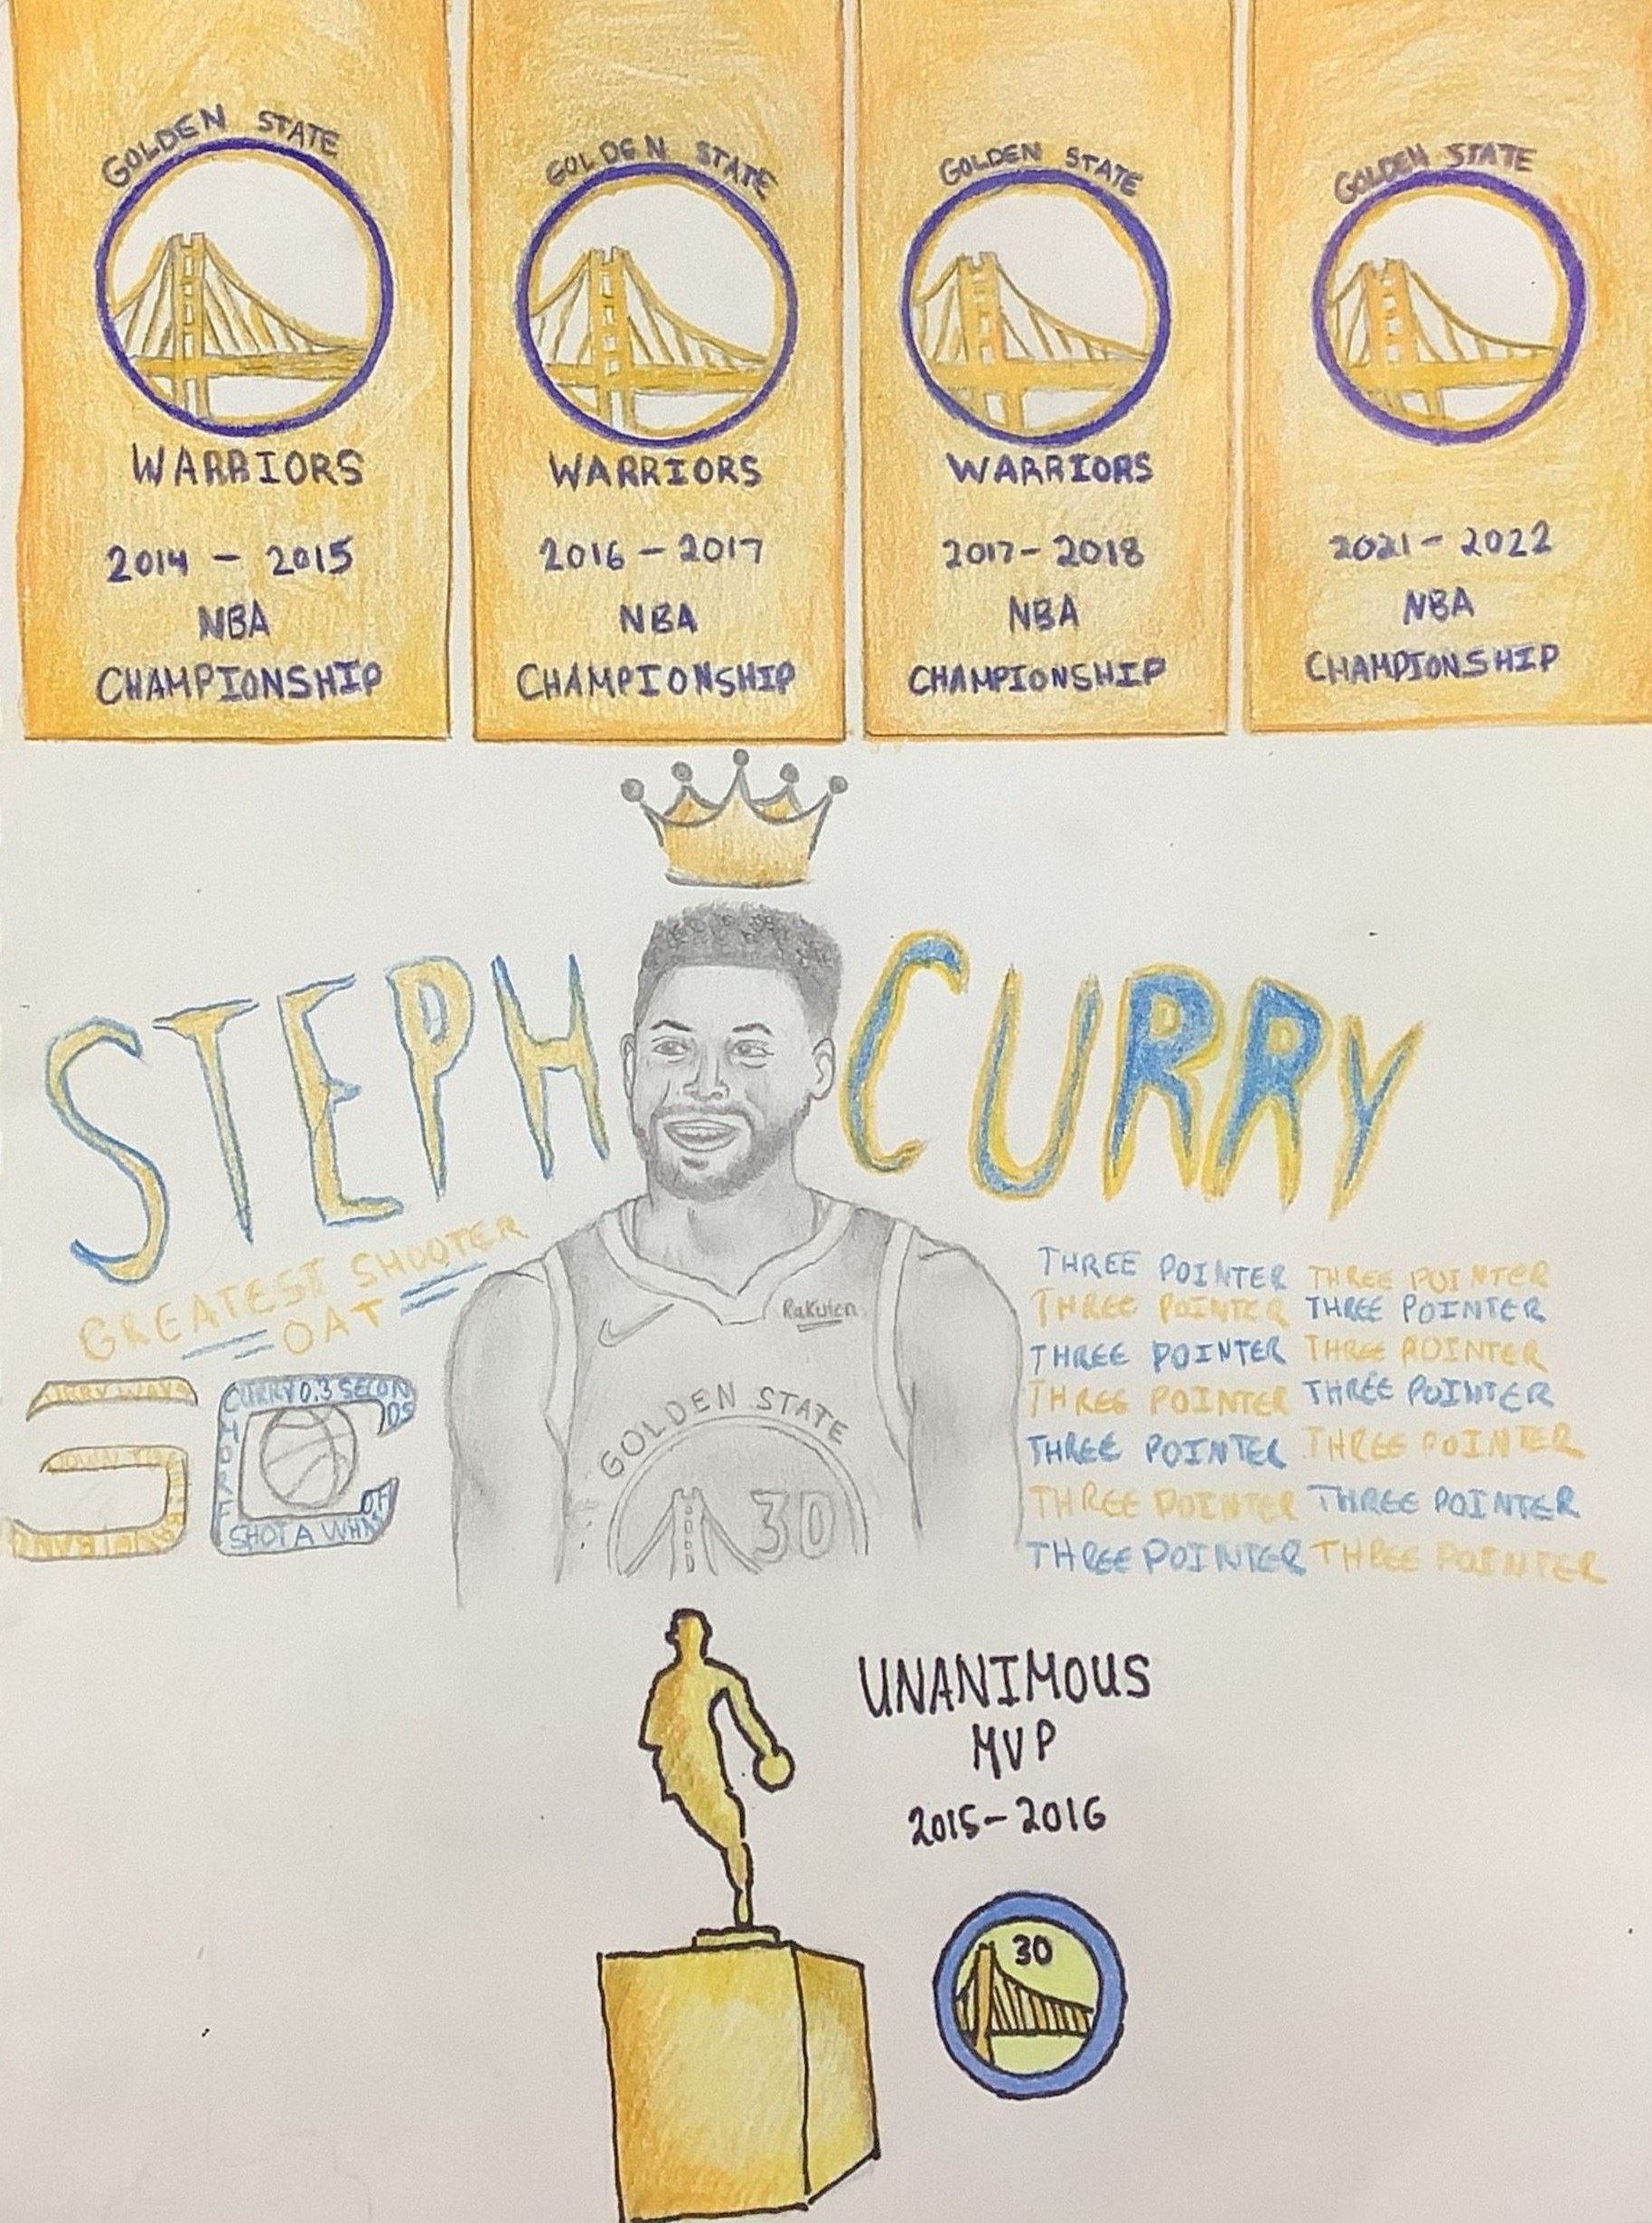 GOLDEN STATE
WARRIORS
2014 - 2015
NBA
CHAMPIONSHIP
GOLDEN STATE
WARRIORS
2016 - 2017
NBA
CHAMPIONSHIP
GOLDEN STATE
WARRIORS
2017 - 2018
NBA
CHAMPIONSHIP
GOLDEN STATE
2021 - 2022
NBA
CHAMPIONSHIP
STEPH CURRY
GREATEST SHOOTER
OAT
CURRY WAY
DOWN TOWN
BANG! BANG!
CURRY 0.3 SECONDS
SHOT A WHAT
OF
Rakuten
GOLDEN STATE
30
THREE POINTER THREE POINTER
THREE POINTER THREE POINTER
THREE POINTER THREE POINTER
THREE POINTER THREE POINTER
THREE POINTER THREE POINTER
THREE POINTER THREE POINTER
THREE POINTER THREE POINTER
UNANIMOUS
MVP
2015-2016
30